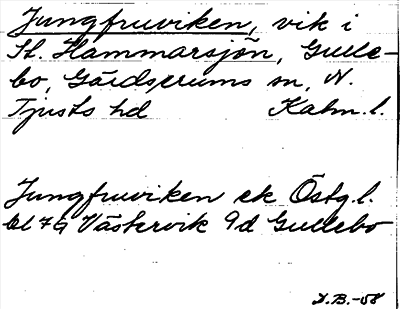 Jungfruviken, vik i
St. Hammarsjön, Gulle-
bo, Gärdserums sn, N.
Tjusts hd Kalm. l.
Jungfruviken ek Östg. l.
bl 79 Västervik 9d Gullebo
D.B.-58